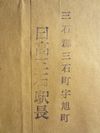 三石郡三石町字旭町
日高三石駅長